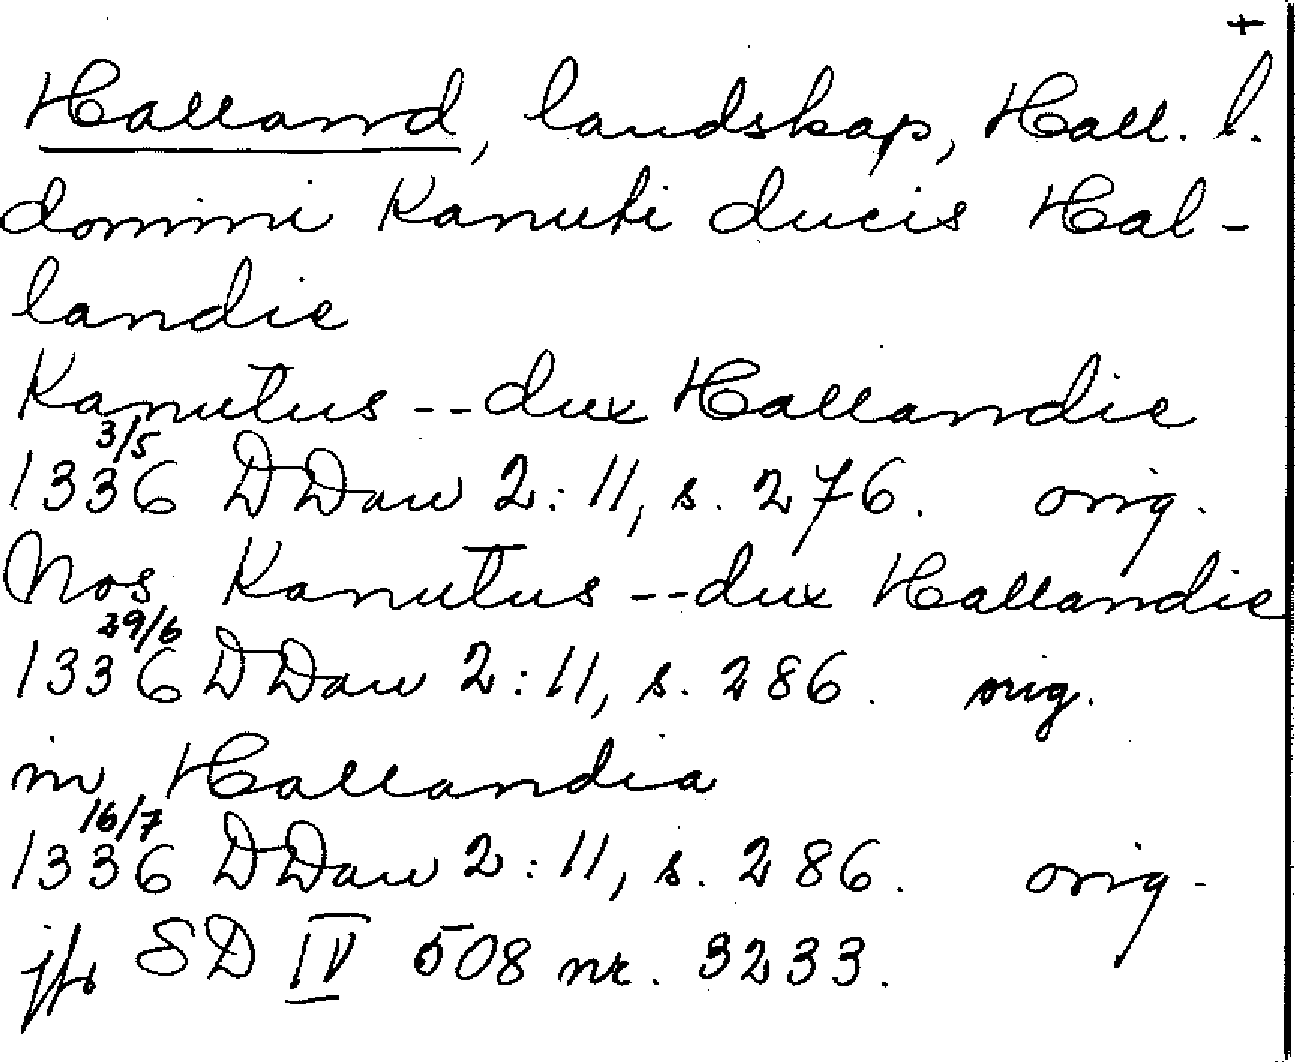 +
Halland, landskap, Hall. l.
domini Kanuti ducis Hal-
landie
Kanutus -- dux Hallandie
3/5
1336 DDan 2:11, s. 276. orig.
Nos Kanutus -- dux Hallandie
29/6
1336 DDan 2:11, s. 286. orig.
in Hallandia
16/7
1336 DDan 2:11, s. 286. orig.
jfr SD IV 508 nr. 3233.